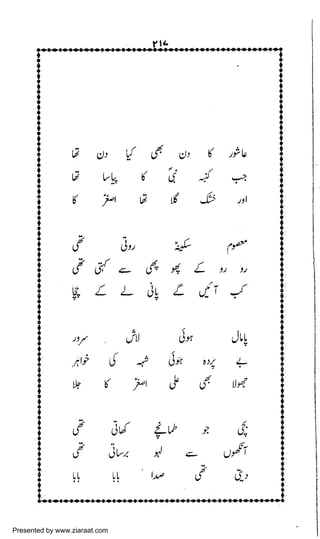 ۲۱۷
عاشور کا دن بھی کیا دن تھا
جب کنبہ نبیؐ کا پیاسا تھا
اور خشک گلا تھا اصغرؑ کا
معصوم سکینہؑ روتی تھی
رو رو کے پھوپھی سے کہتی تھی
کب آئیں گے پانی لے کے چچا
پامال ہوئی لاش سرور
بے پردہ ہوئی شہہ کی خواہر
جھولا بھی علی اصغرؑ کا جلا
بچی جو طمانچے کھاتی تھی
آنکھوں سے لہو برساتی تھی
دیتی تھی صدا بابا بابا
Presented by www.ziaraat.com